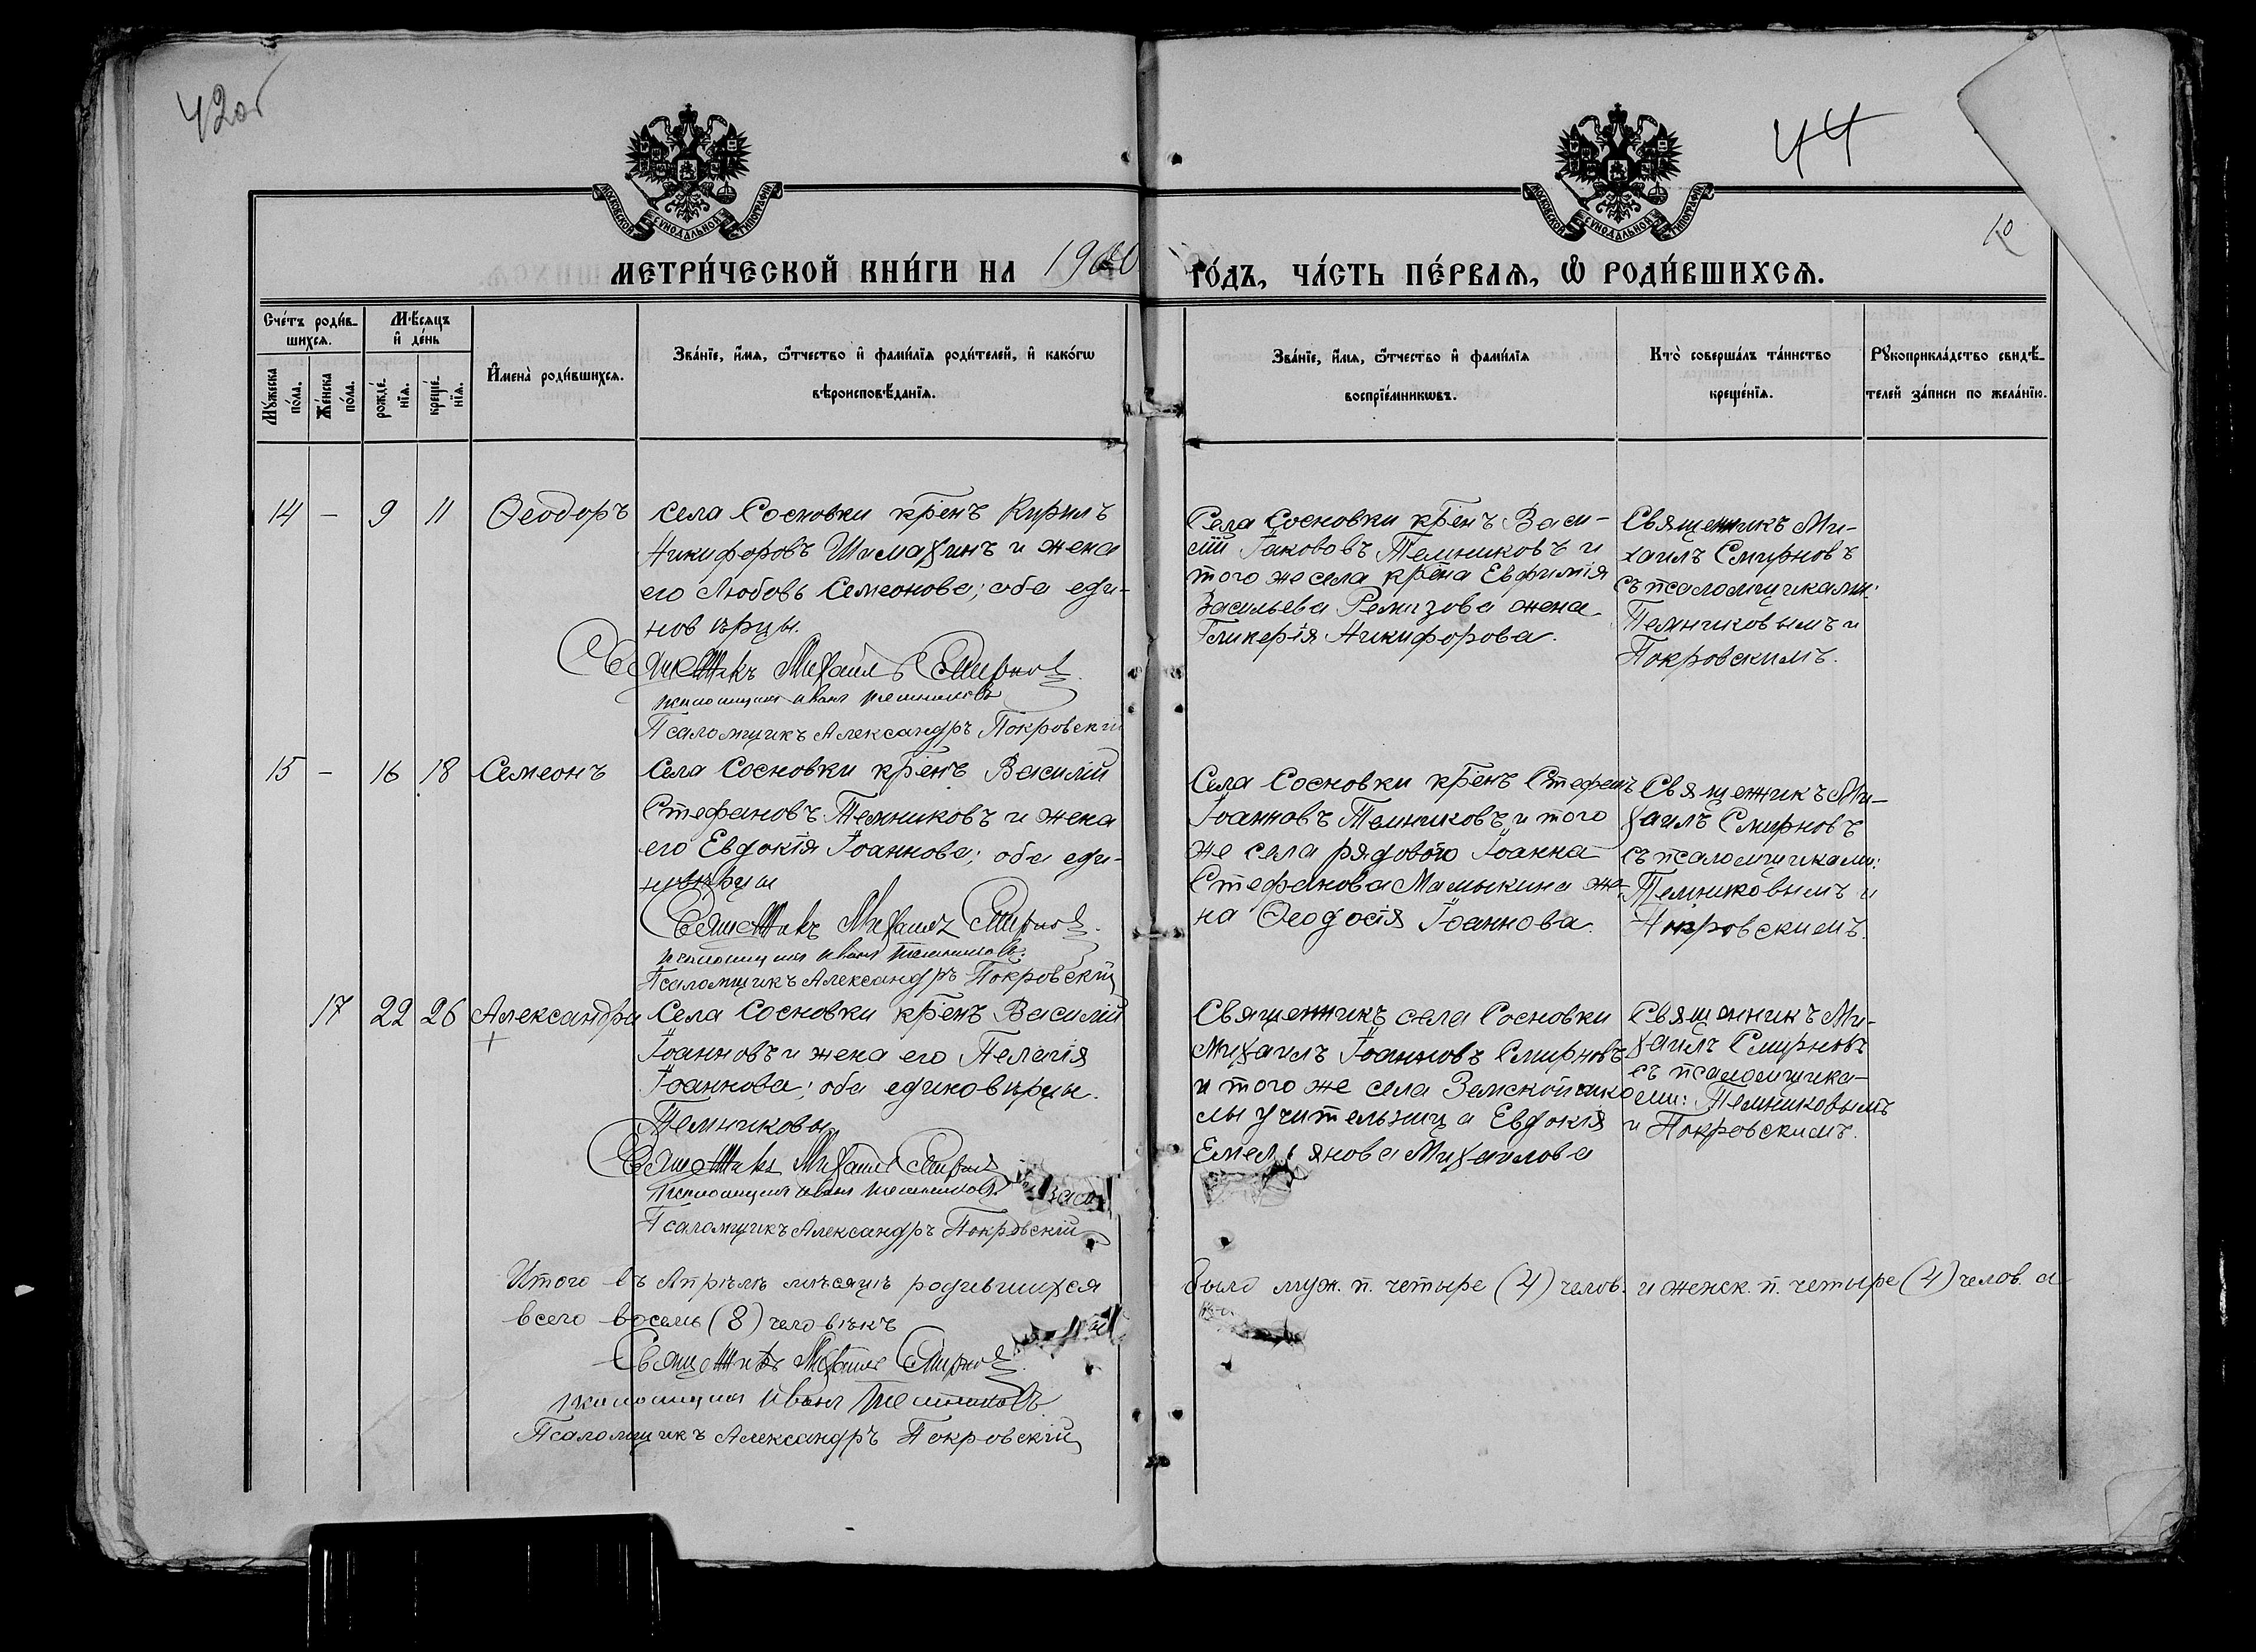 42об
44
10
МОСКОВСКОЙ СѴНОДАЛЬНОЙ ТИПОГРАФІИ
МОСКОВСКОЙ СѴНОДАЛЬНОЙ ТИПОГРАФІИ
МЕТРИ́ЧЕСКОЙ КНИ́ГИ НА 1900 ГО́ДЪ, ЧА́СТЬ ПЕ́РВАѦ, Ѡ҆ РОДИ́ВШИХСѦ.
Сче́тъ роди́в-
шихсѧ.
Мꙋ́жеска
по́ла.
Же́нска
по́ла.
Мѣ́сѧцъ
и҆ де́нь
рожде́-
нїѧ.
креще́-
нїѧ.
И҆мена̀ роди́вшихсѧ.
Зва́нїе, и҆́мѧ, ѻ҆́тчество и҆ фами́лїѧ роди́телей, и҆ како́гѡ
вѣроисповѣ́данїѧ.
Зва́нїе, и҆́мѧ, ѻ҆́тчество и҆ фами́лїѧ
воспрїе́мникѡвъ.
Кто̀ соверша́лъ та́инство
креще́нїѧ.
Рꙋкоприкла́дство свидѣ́-
телей за́писи по жела́нїю.
14 – 9 11 Ѳеодоръ
села Сосновки кр҃енъ Кирилъ
Никифоровъ Шамахинъ и жена
его Любовь Семеонова; оба еди-
новѣрцы.
Священникъ Михаилъ Смирновъ
псаломщикъ Иванъ Темниковъ
Псаломщикъ Александръ Покровскій
Села Сосновки кр҃енъ Васи-
лій Іаковлевъ Темниковъ и
того же села кр҃ена Евфимія
Васильева Ремизова жена
Гликерія Никифорова.
Священникъ Ми-
хаилъ Смирновъ
съ псаломщиками:
Темниковымъ и
Покровскимъ.
15 – 16 18 Семеонъ
Села Сосновки кр҃енъ Василій
Стефановъ Темниковъ и жена
его Евдокія Іоаннова; оба еди-
новѣрцы
Священникъ Михаилъ Смирновъ
псаломщикъ Иванъ Темниковъ
Псаломщикъ Александръ Покровскій
Села Сосновки кр҃енъ Стефанъ
Іоанновъ Темниковъ и того
же села рядового Іоанна
Стефанова Мамыкина же-
на Ѳеодосія Іоаннова.
Священникъ Ми-
хаилъ Смирновъ
съ псаломщиками:
Темниковымъ и
Покровскимъ.
17 22 26 Александра
Села Сосновки кр҃енъ Василій
Іоанновъ и жена его Пелагія
Іоаннова; оба единовѣрцы.
Темниковы
Священникъ Михаилъ Смирновъ
псаломщикъ Иванъ Темниковъ
Псаломщикъ Александръ Покровскій
Священникъ села Сосновки
Михаилъ Іоанновъ Смирновъ
и того же села Земской шко-
лы учительница Евдокія
Емельянова Михаилова
Священникъ Ми-
хаилъ Смирновъ
съ псаломщика-
ми: Темниковымъ
и Покровскимъ.
Итого въ Апрѣлѣ мѣсяцѣ родившихся было муж. п. четыре (4) челов. и женск. п. четыре (4) челов. а
всего восемь (8) человѣкъ
Священникъ Михаилъ Смирновъ
псаломщикъ Иванъ Темниковъ
Псаломщикъ Александръ Покровскій